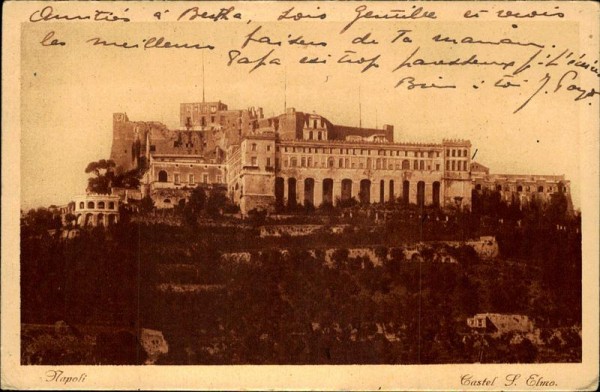 Amitiés à Bertha, Sois gentille et reçois
les meilleurs baisers de ta maman.
Papa est trop paresseux p. t'écrire
Bien à toi J.
Napoli
Castel S. Elmo.